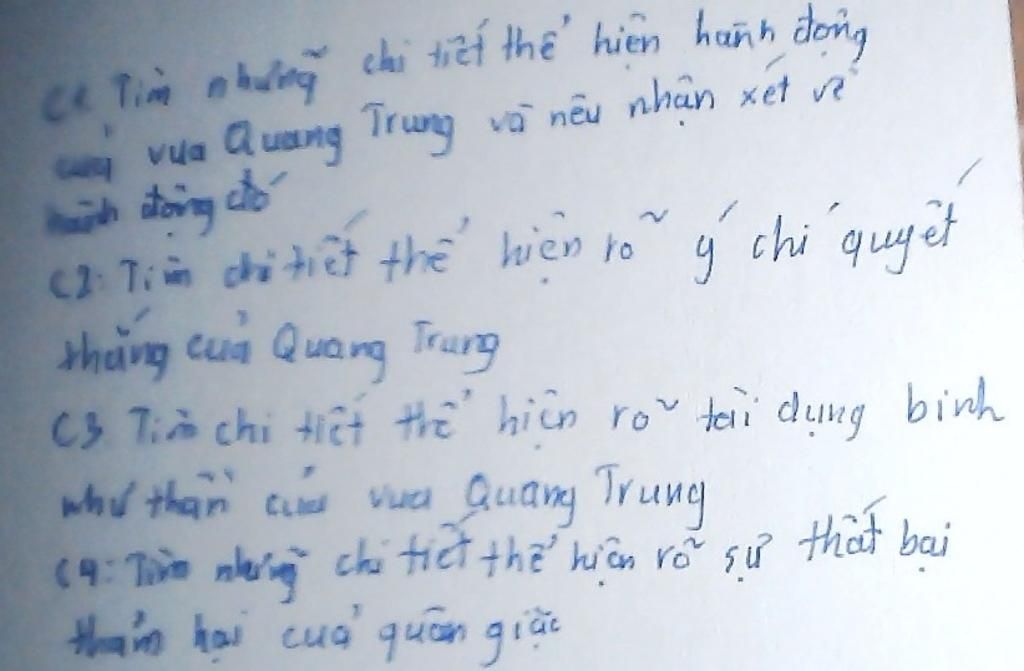 C1 Tìm những chi tiết thể hiện hành động
của vua Quang Trung và nêu nhận xét về
hành động đó
C2: Tìm chi tiết thể hiện rõ ý chí quyết
thắng của Quang Trung
C3 Tìm chi tiết thể hiện rõ tài dụng binh
như thần của vua Quang Trung
C4: Tìm những chi tiết thể hiện rõ sự thất bại
thảm hại của quân giặc